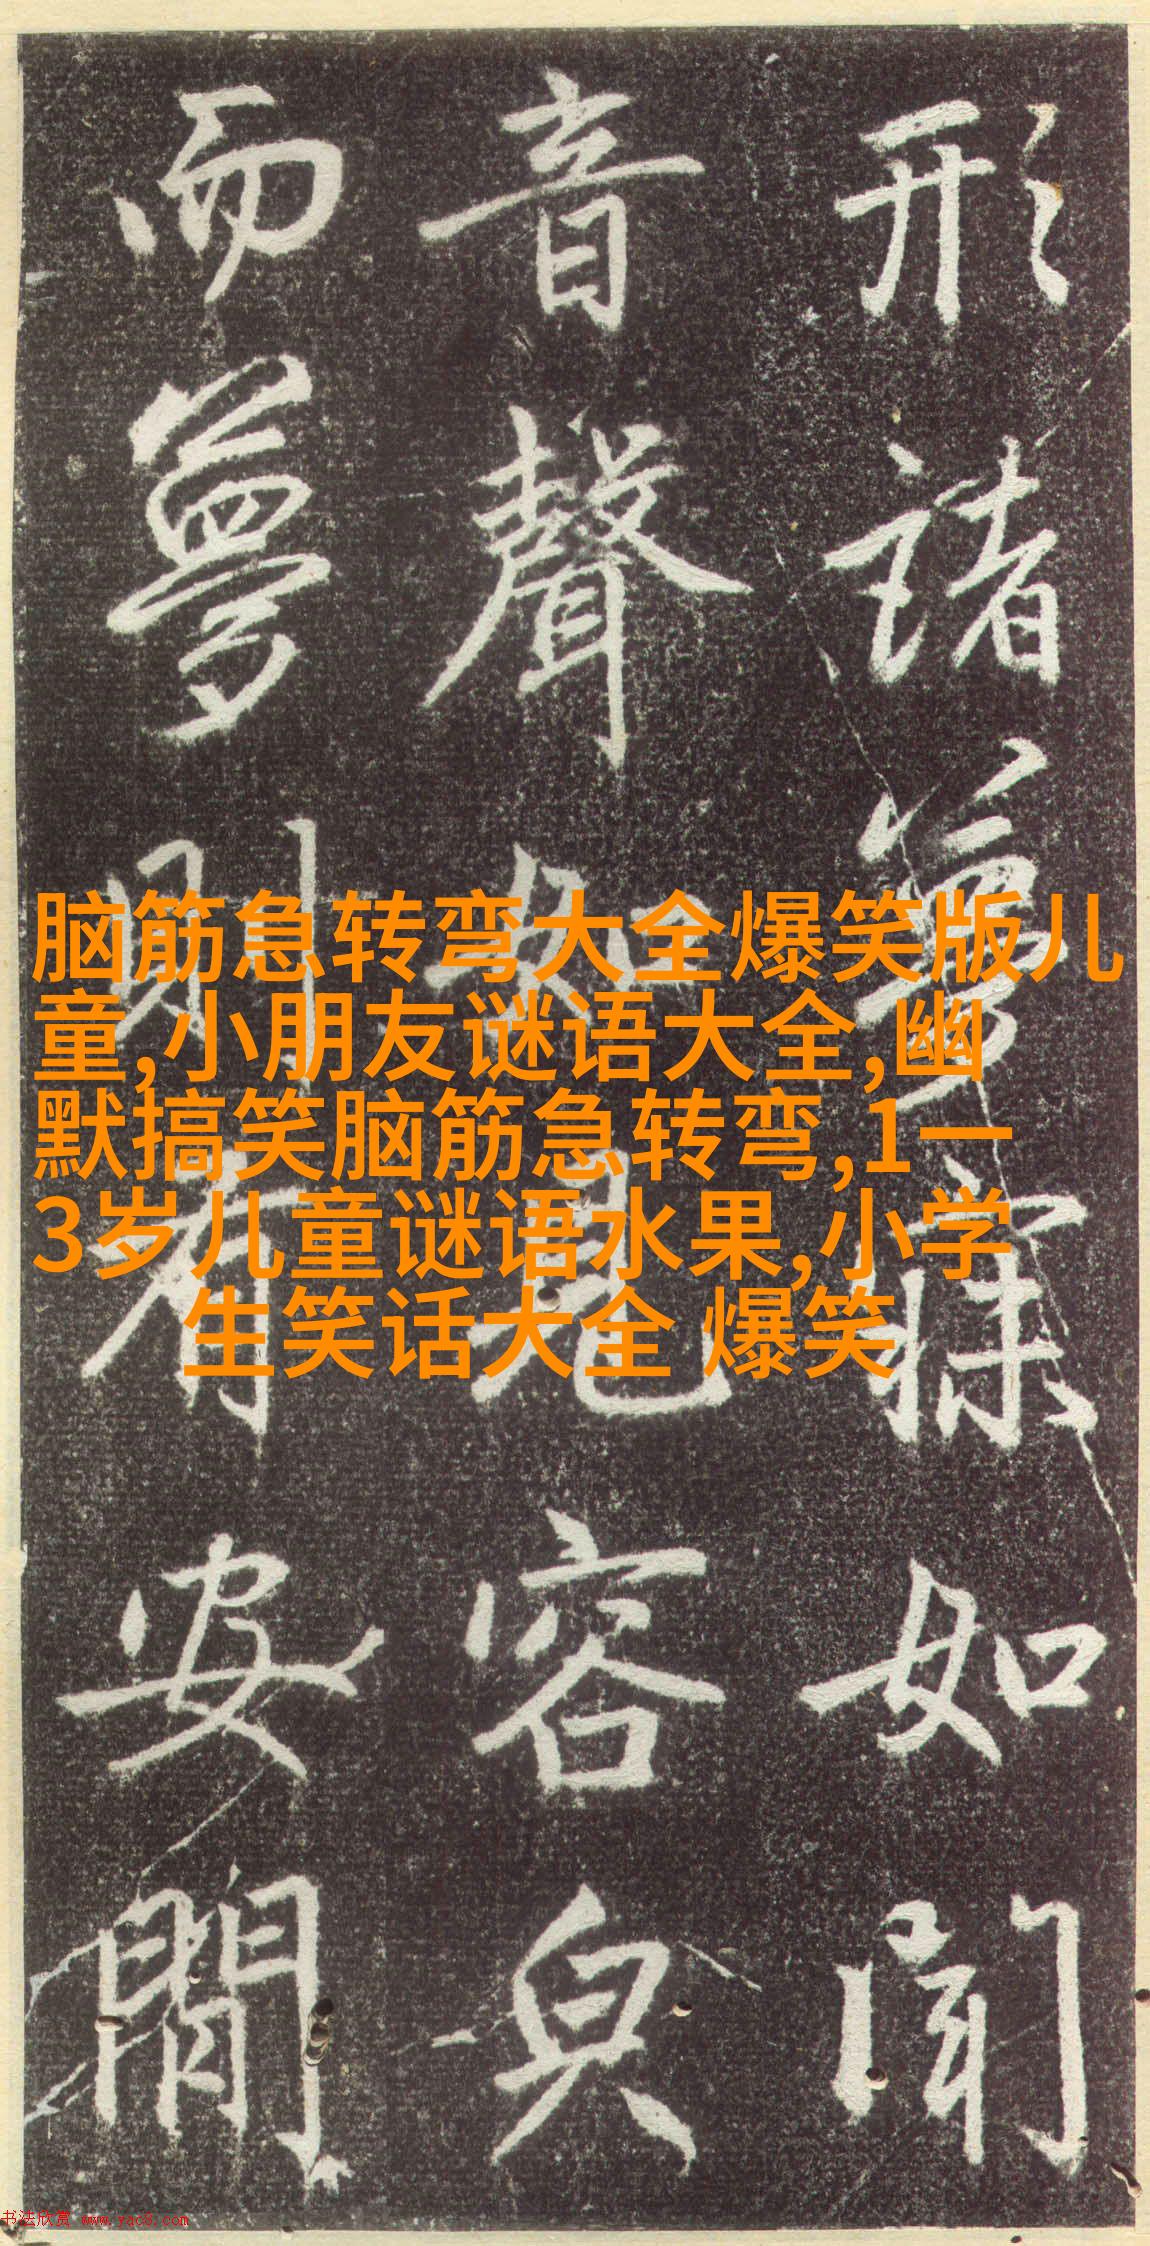 形諸夢寐如聞
音聲如見容皃
而夢則有安閒
脑筋急转弯大全爆笑版儿
童,小朋友谜语大全,幽
默搞笑脑筋急转弯,1一
3岁儿童谜语水果,小学
生笑话大全 爆笑
书法欣赏 www.yac8.com